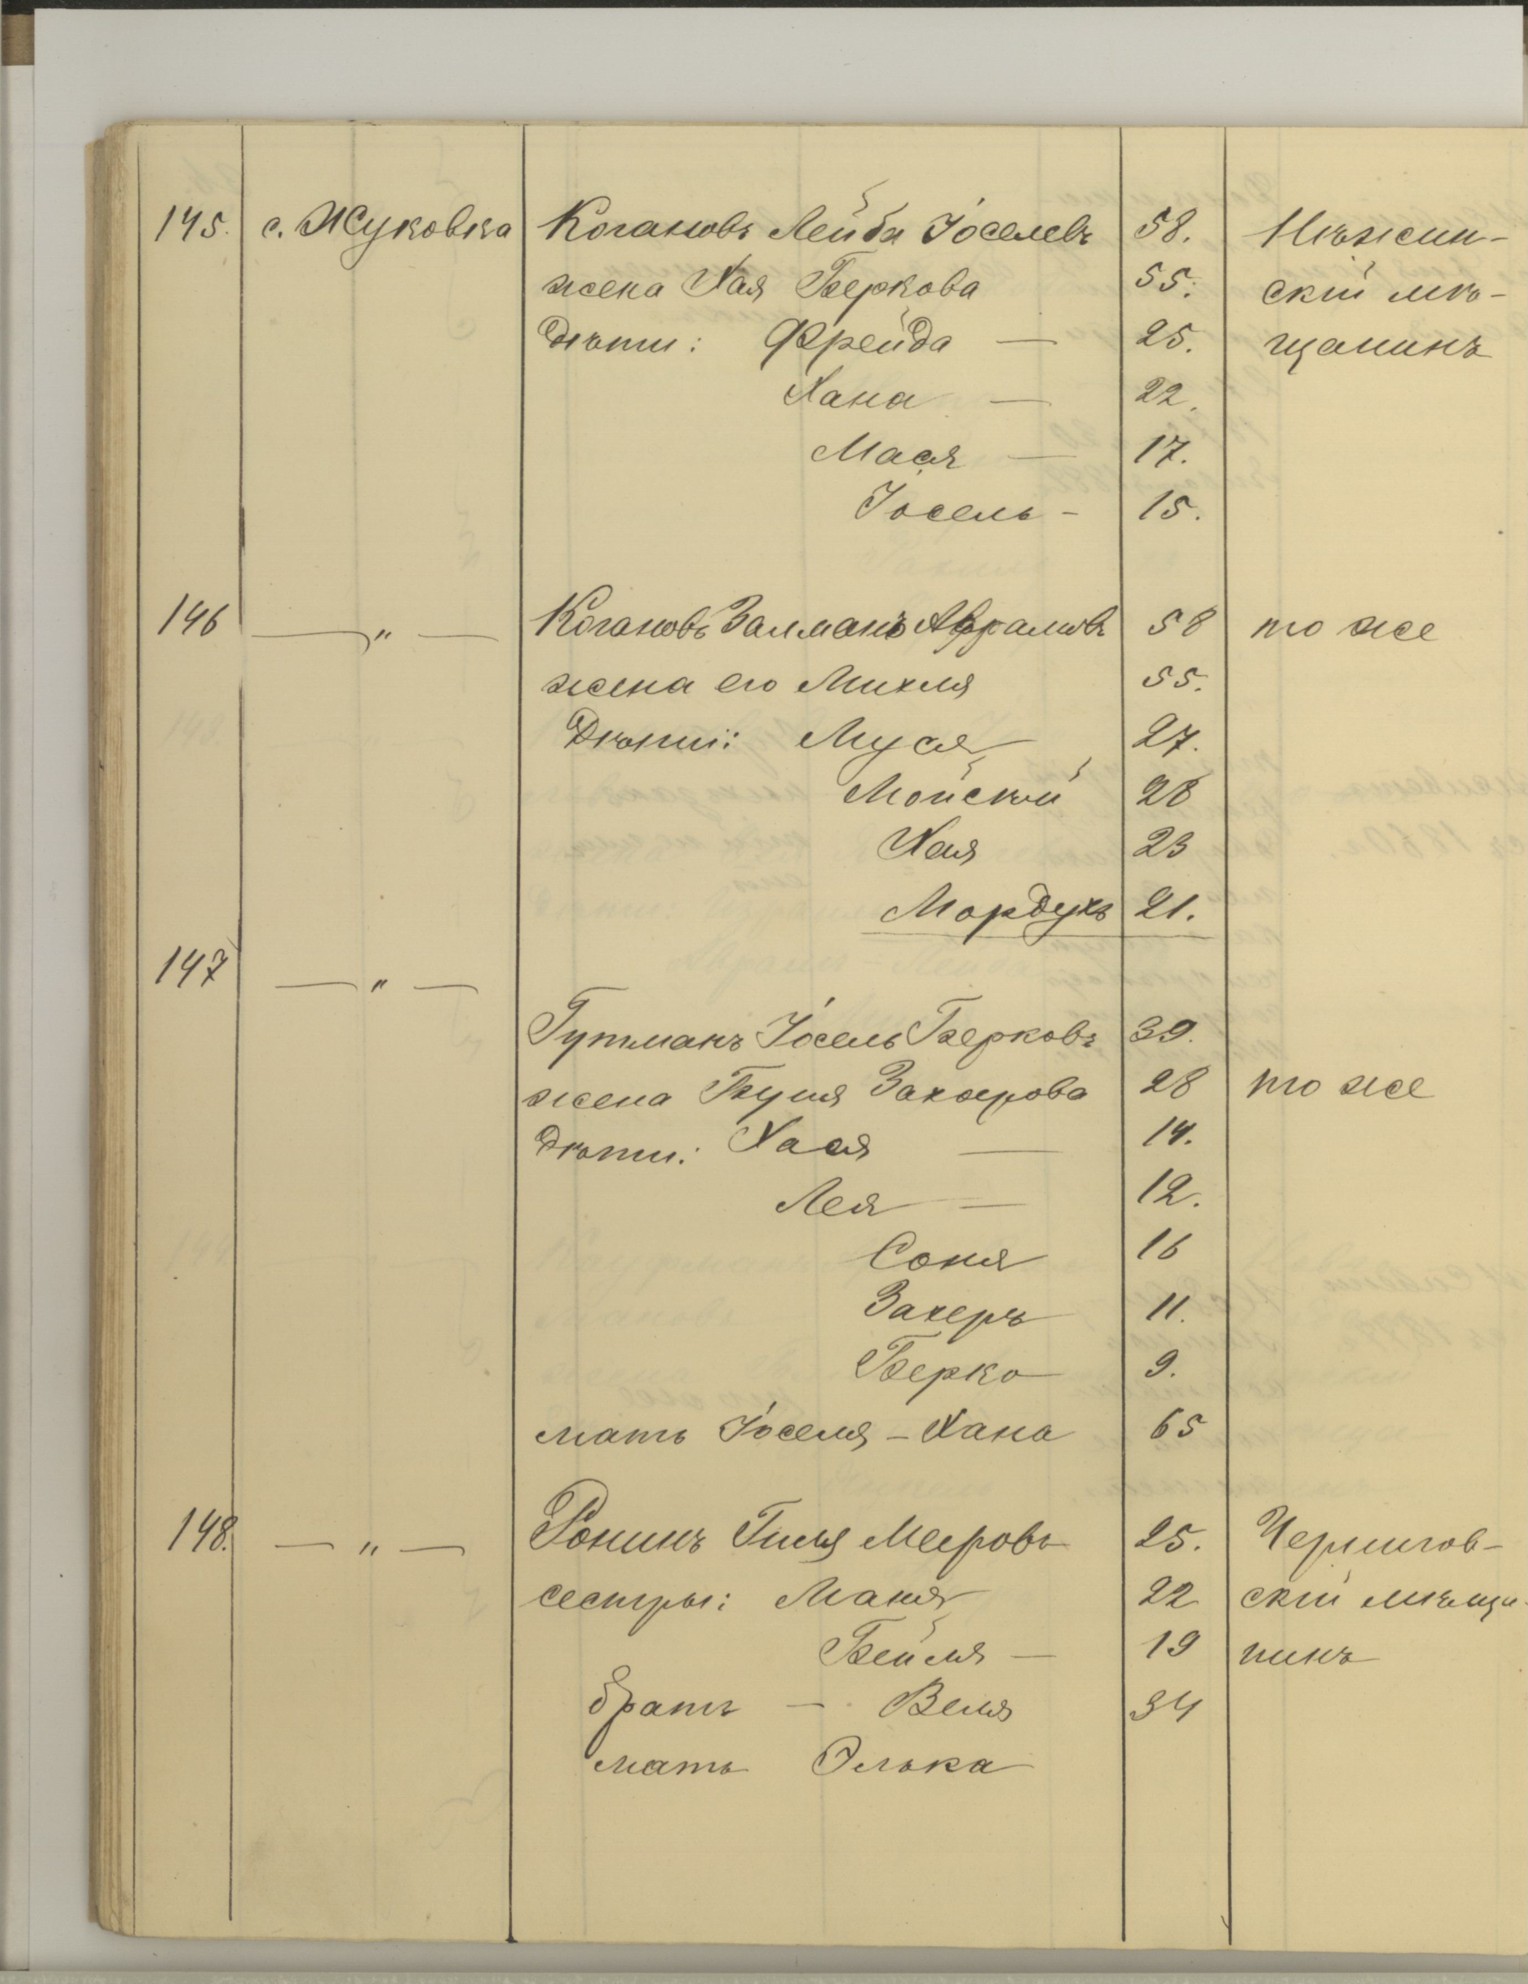 145. с. Жуковка Когановъ Лейба Іоселевъ 58. Нѣжин-
жена Хая Беркова 55. скій мѣ-
Дѣти: Фрейда — 25. щанинъ
Хана — 22.
Мася — 17.
Іосель - 15.
146 — " — Когановъ Залманъ Абрамовъ 58 то же
жена его Михля 55.
Дѣти: Муся 27.
Мойсѣй 28
Хая 23
Мордухъ 21.
147 — " —
Гутманъ Іосель Берковъ 39.
жена Буня Захерова 28 то же
Дѣти: Хася — 14.
Лея — 12.
Соня 16
Захеръ 11.
Берко 9.
мать Іоселя - Хана 65
148. — " — Ронинъ Гиля Меeровъ 25. Чернигов-
сестры: Маня 22 скій мѣща-
Бейля — 19 нинъ
братъ — Веля 34
мать Элька